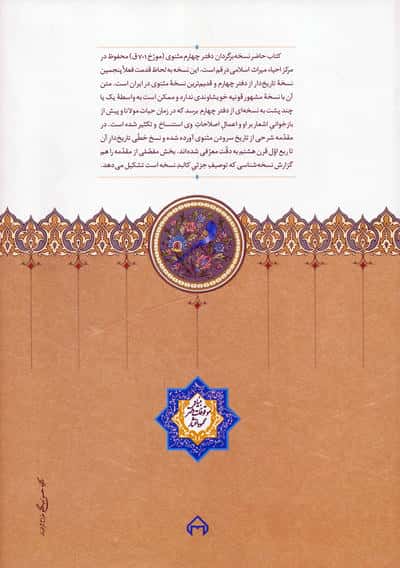 کتاب حاضر نسخه‌برگردان دفتر چهارم مثنوی (مورّخ ۷۰۱ ق) محفوظ در
مرکز احیاء میراث اسلامی در قم است. این نسخه به لحاظ قدمت فعلاً پنجمین
نسخهٔ تاریخ‌دار از دفتر چهارم و قدیم‌ترین نسخهٔ مثنوی در ایران است. متن
آن با نسخهٔ مشهور قونیه خویشاوندی دارد و ممکن است به واسطهٔ یک یا
چند پشت به نسخه‌ای از دفتر چهارم برسد که در زمان حیات مولانا و پیش از
بازخوانی اشعار بر او و اعمال اصلاحات وی استنساخ و تکثیر شده است. در
مقدّمه شرحی از تاریخ سرودن مثنوی آورده شده و نسخ خطّی تاریخ‌دار آن
تا ربع اوّل قرن هشتم به دقّت معرّفی شده‌اند. بخش مفصّلی از مقدّمه را هم
گزارش نسخه‌شناسی که توصیف جزئی کالبد نسخه است تشکیل می‌دهد.
بنیاد
موقوفات دکتر
محمود افشار